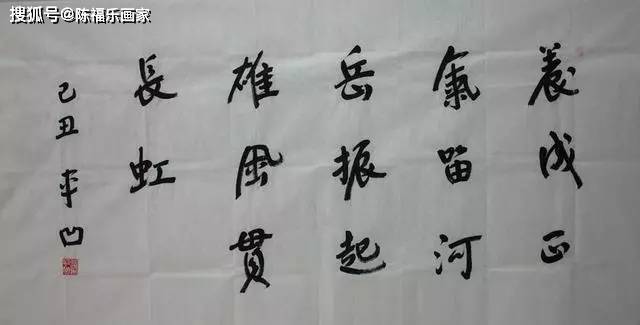 搜狐号@陈福乐画家
養成正
氣留河
岳振起
雄風貫
長虹
己丑 平凹